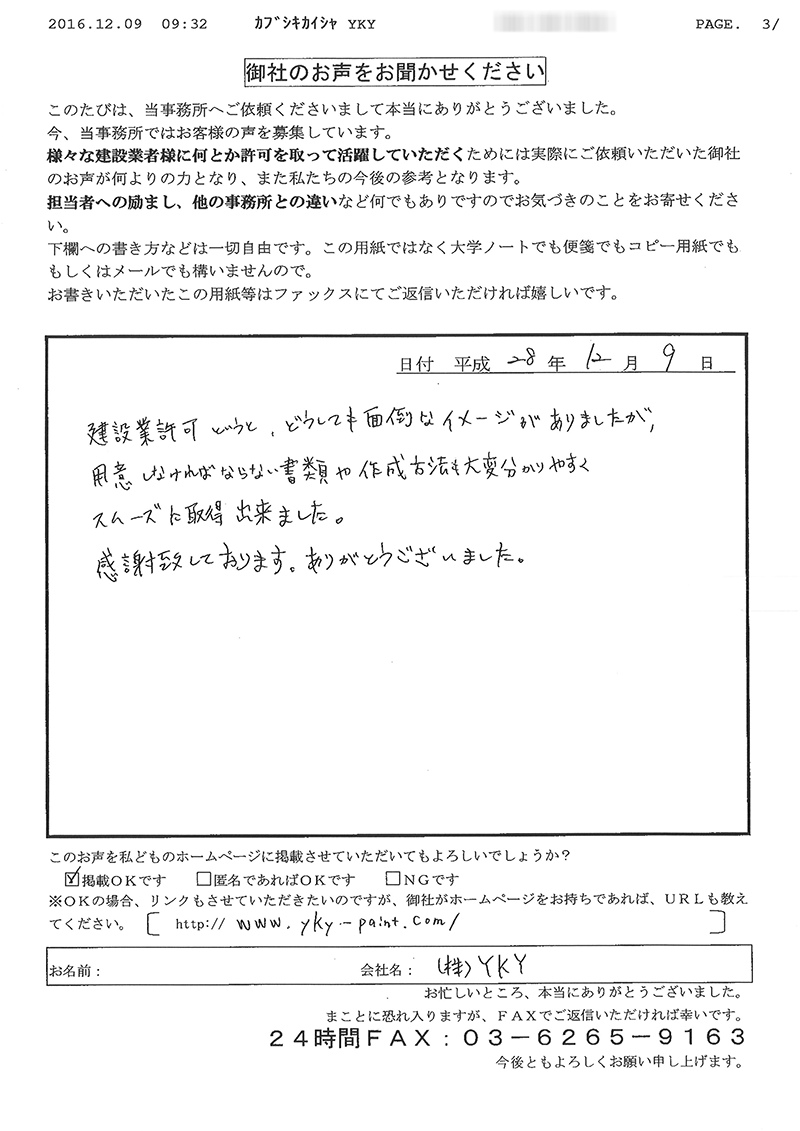 2016.12.09 09:32 ｶﾌﾞｼｷｶｲｼｬ YKY PAGE. 3/
御社のお声をお聞かせください
このたびは、当事務所へご依頼くださいまして本当にありがとうございました。
今、当事務所ではお客様の声を募集しています。
様々な建設業者様に何とか許可を取って活躍していただくためには実際にご依頼いただいた御社
のお声が何よりの力となり、また私たちの今後の参考となります。
担当者への励まし、他の事務所との違いなど何でもありですのでお気づきのことをお寄せくださ
い。
下欄への書き方などは一切自由です。この用紙ではなく大学ノートでも便箋でもコピー用紙でも
もしくはメールでも構いませんので。
お書きいただいたこの用紙等はファックスにてご返信いただければ嬉しいです。
日付 平成 28 年 12 月 9 日
建設業許可というと、どうしても面倒なイメージがありましたが、
用意しなければならない書類や作成方法も大変分かりやすく
スムーズに取得出来ました。
感謝致しております。ありがとうございました。
このお声を私どものホームページに掲載させていただいてもよろしいでしょうか？
☑掲載ＯＫです □匿名であればＯＫです □ＮＧです
※ＯＫの場合、リンクもさせていただきたいのですが、御社がホームページをお持ちであれば、ＵＲＬも教え
てください。［ http:// www.yky-paint.com/ ］
お名前： 会社名： (株)YKY
お忙しいところ、本当にありがとうございました。
まことに恐れ入りますが、ＦＡＸでご返信いただければ幸いです。
２４時間ＦＡＸ：０３－６２６５－９１６３
今後ともよろしくお願い申し上げます。